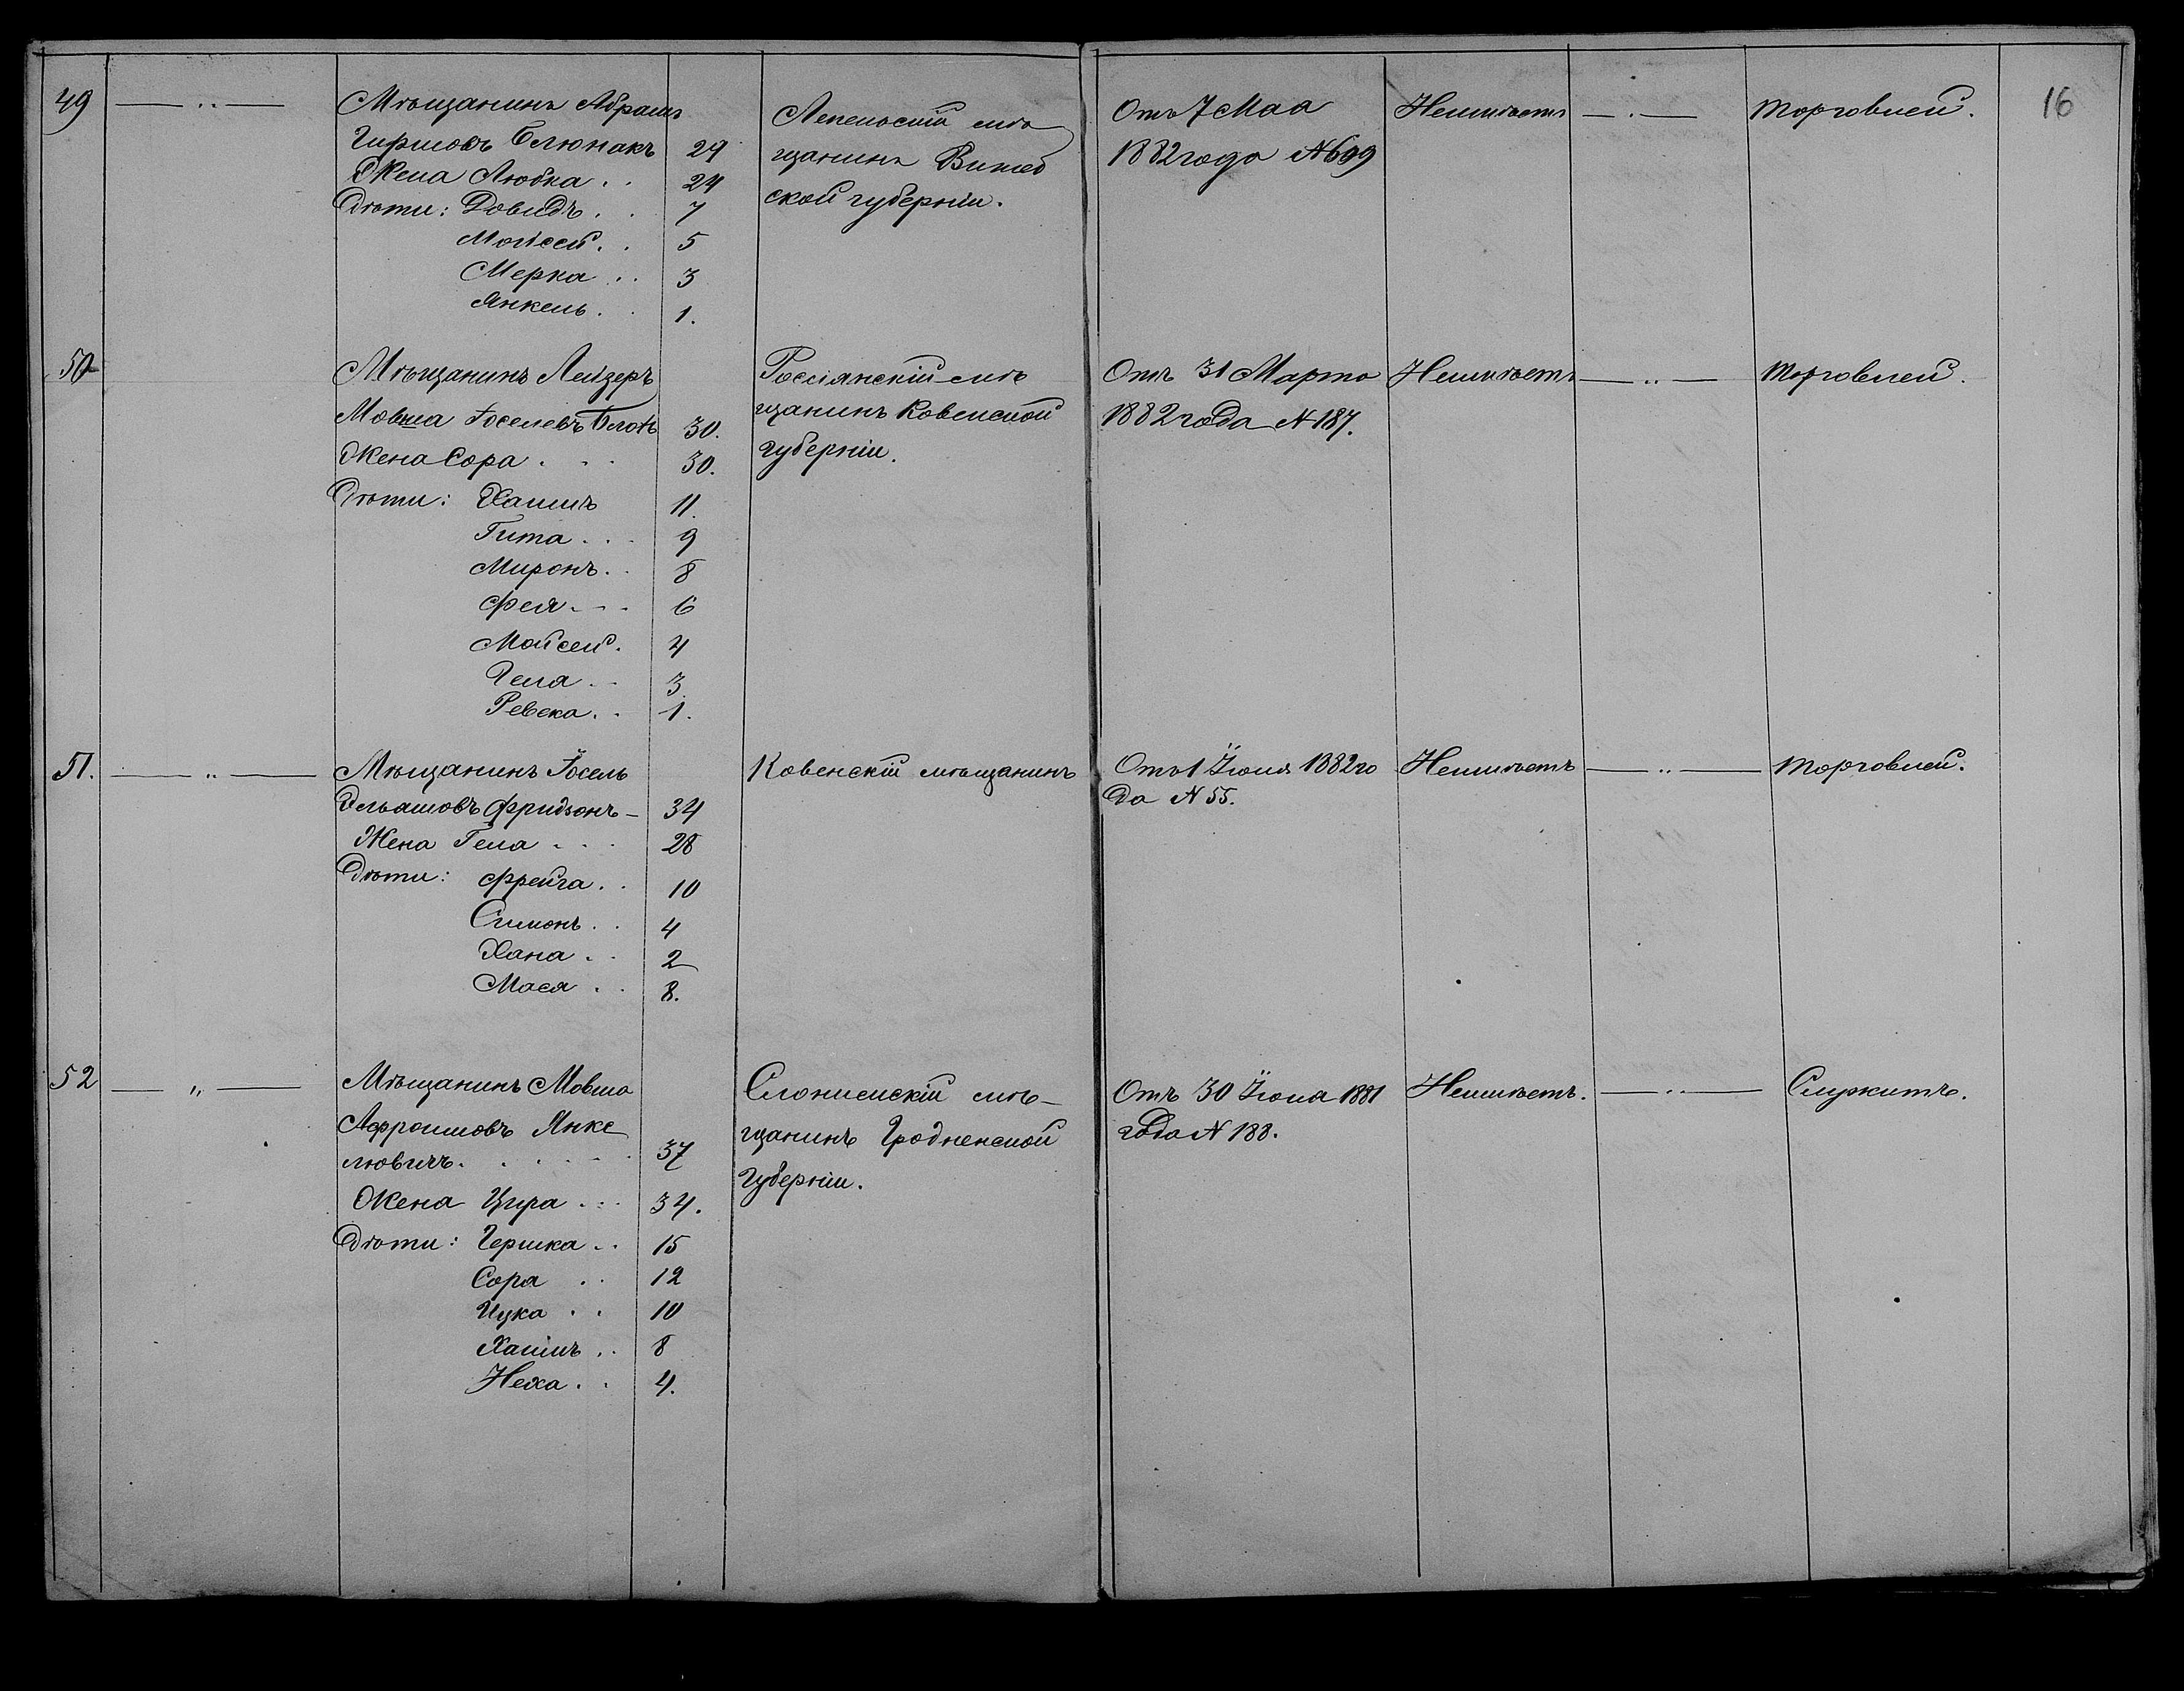 16
49 — " — Мѣщанинъ Абрамъ
Гиршовъ Блюнакъ 29
Жена Любка . . 24
Дѣти: Довидъ . . 7
Мойсей . . 5
Мерка . . 3
Янкель . . 1.
Лепельскій мѣ
щанинъ Витеб
ской губерніи.
Отъ 7 Мая
1882 года №699
Неимѣетъ — " — Торговлей.
50 Мѣщанинъ Лейзеръ
Мовша Іоселевъ Блохъ 30.
Жена Сора . . . 30.
Дѣти: Хаимъ 11.
Гита . . . 9
Миронъ . . 8
Фея . . . 6
Мойсей . 4
Гела . . 3.
Ревека . . 1.
Россіянскій мѣ
щанинъ Ковенской
губерніи.
Отъ 31 Марта
1882 года №187.
Неимѣетъ — " — Торговлей.
51. — " — Мѣщанинъ Іосель
Эльяшовъ Фридзонъ — 34
Жена Гела . . . 28
Дѣти: Фрейга . . 10
Симонъ . . 4
Хана . . 2
Мася . . 8.
Ковенскій мѣщанинъ
Отъ 1 Іюня 1882 го
да №55.
Неимѣетъ — " — Торговлей.
52 — " — Мѣщанинъ Мовша
Афроимовъ Янке
левичъ . . . . . . 37
Жена Цира . . . 34.
Дѣти: Гершка . . 15
Сора . . 12
Ицка . . 10
Хаимъ . . 8
Неха . . 4.
Слонимскій мѣ-
щанинъ Гродненской
Губерніи.
Отъ 30 Іюня 1881
года №188.
Неимѣетъ. — " — Служитъ.